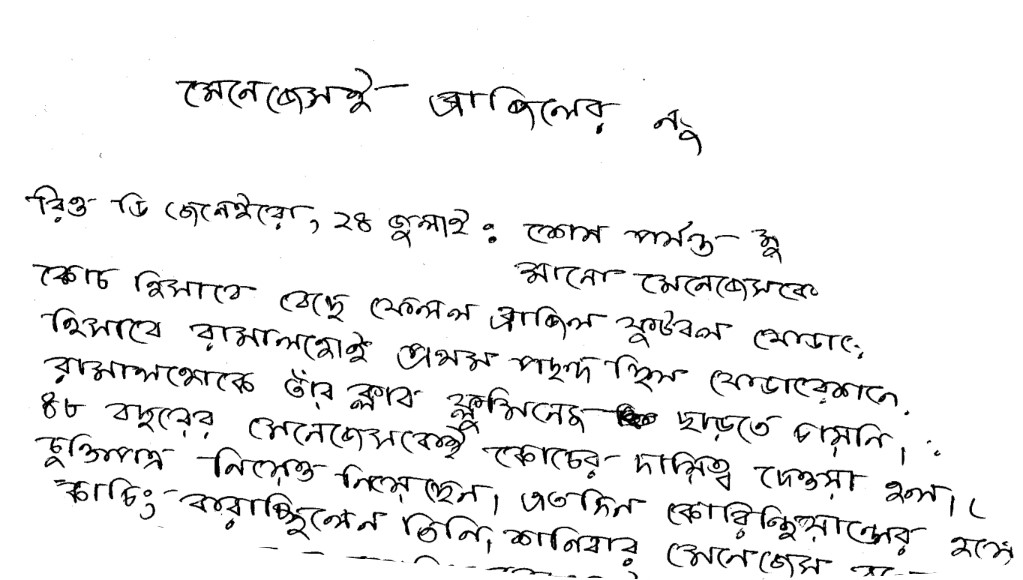 মেনেজেসই ব্রাজিলের
রিও ডি জেনেইরো, ২৪ জুলাই : শেষ পর্যন্ত
মানো মেনেজেসকে
কোচ হিসাবে বেছে ফেলল ব্রাজিল ফুটবল ফেডারে
হিসাবে রামালহোই প্রথম পছন্দ ছিল ফেডারেশনে
রামালহোকে তাঁর ক্লাব ফ্লুমিনেজ ছাড়তে চায়নি।
৪৮ বছরের মেনেজেসকেই কোচের দায়িত্ব দেওয়া হল।
চুক্তিপত্র নিয়েও নিয়েছেন। এতদিন কোরিন্থিয়ান্সের হয়ে
কোচিং করাচ্ছিলেন তিনি। শনিবার মেনেজেস